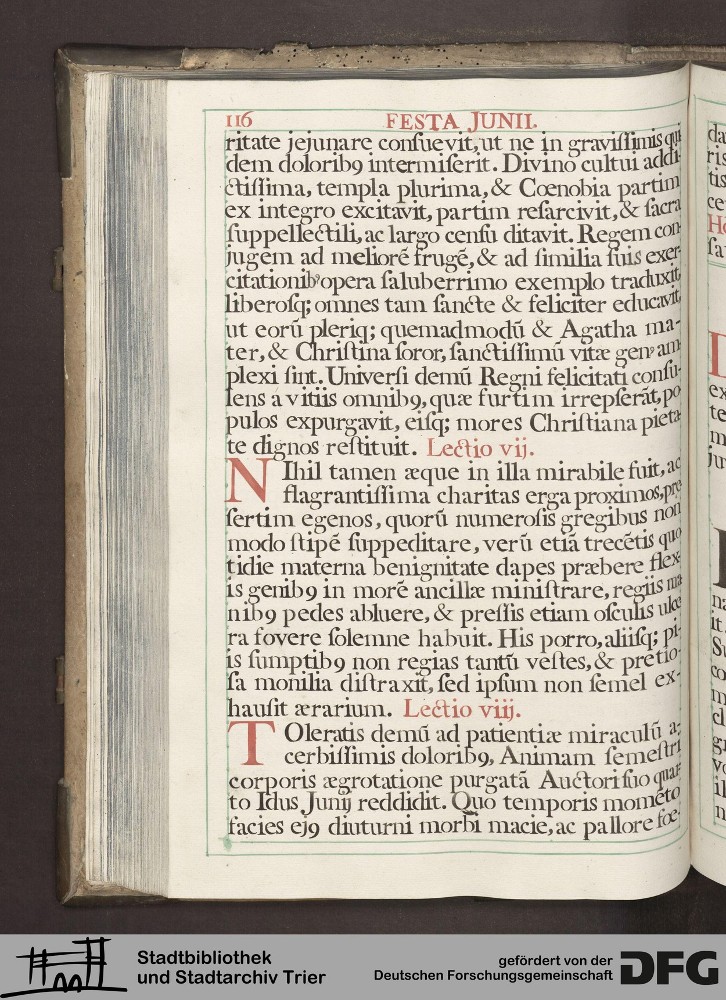 116 FESTA JUNII.
ritate jejunare conſuevit, ut ne in graviſſimis qui
dem dolorib9 intermiſerit. Divino cultui addi-
ctiſſima, templa plurima, & Cœnobia partim
ex integro excitavit, partim reſarcivit, & ſacra
ſuppellectili, ac largo cenſu ditavit. Regem con-
jugem ad meliorẽ frugẽ, & ad ſimilia ſuis exer-
citationib9 opera ſaluberrimo exemplo traduxit,
liberoſq; omnes tam ſancte & feliciter educavit,
ut eorũ pleriq; quemadmodũ & Agatha ma-
ter, & Chriſtina ſoror, ſanctiſſimũ vitæ gen9 am-
plexi ſint. Univerſi demũ Regni felicitati conſu-
lens a vitiis omnib9, quæ furtim irrepſerãt, po
pulos expurgavit, eiſq; mores Chriſtiana pieta-
te dignos reſtituit. Lectio vij.
NIhil tamen æque in illa mirabile fuit, ac
flagrantiſſima charitas erga proximos, præ
ſertim egenos, quorũ numeroſis gregibus non
modo ſtipẽ ſuppeditare, verũ etiã trecẽtis quo
tidie materna benignitate dapes præbere flex-
is genib9 in morẽ ancillæ miniſtrare, regiis ma
nib9 pedes abluere, & preſſis etiam oſculis ulce
ra fovere ſolemne habuit. His porro, aliiſq; pi-
is ſumptib9 non regias tantũ veſtes, & pretio-
ſa monilia diſtraxit, ſed ipſum non ſemel ex-
hauſit ærarium. Lectio viij.
TOleratis demũ ad patientiæ miraculũ a-
cerbiſſimis dolorib9, Animam ſemeſtri
corporis ægrotatione purgatã Auctori ſuo quar-
to Idus Junij reddidit. Quo temporis momẽto
facies ej9 diuturni morbi macie, ac pallore foe-
Stadtbibliothek
und Stadtarchiv Trier
gefördert von der
Deutschen Forschungsgemeinschaft
DFG